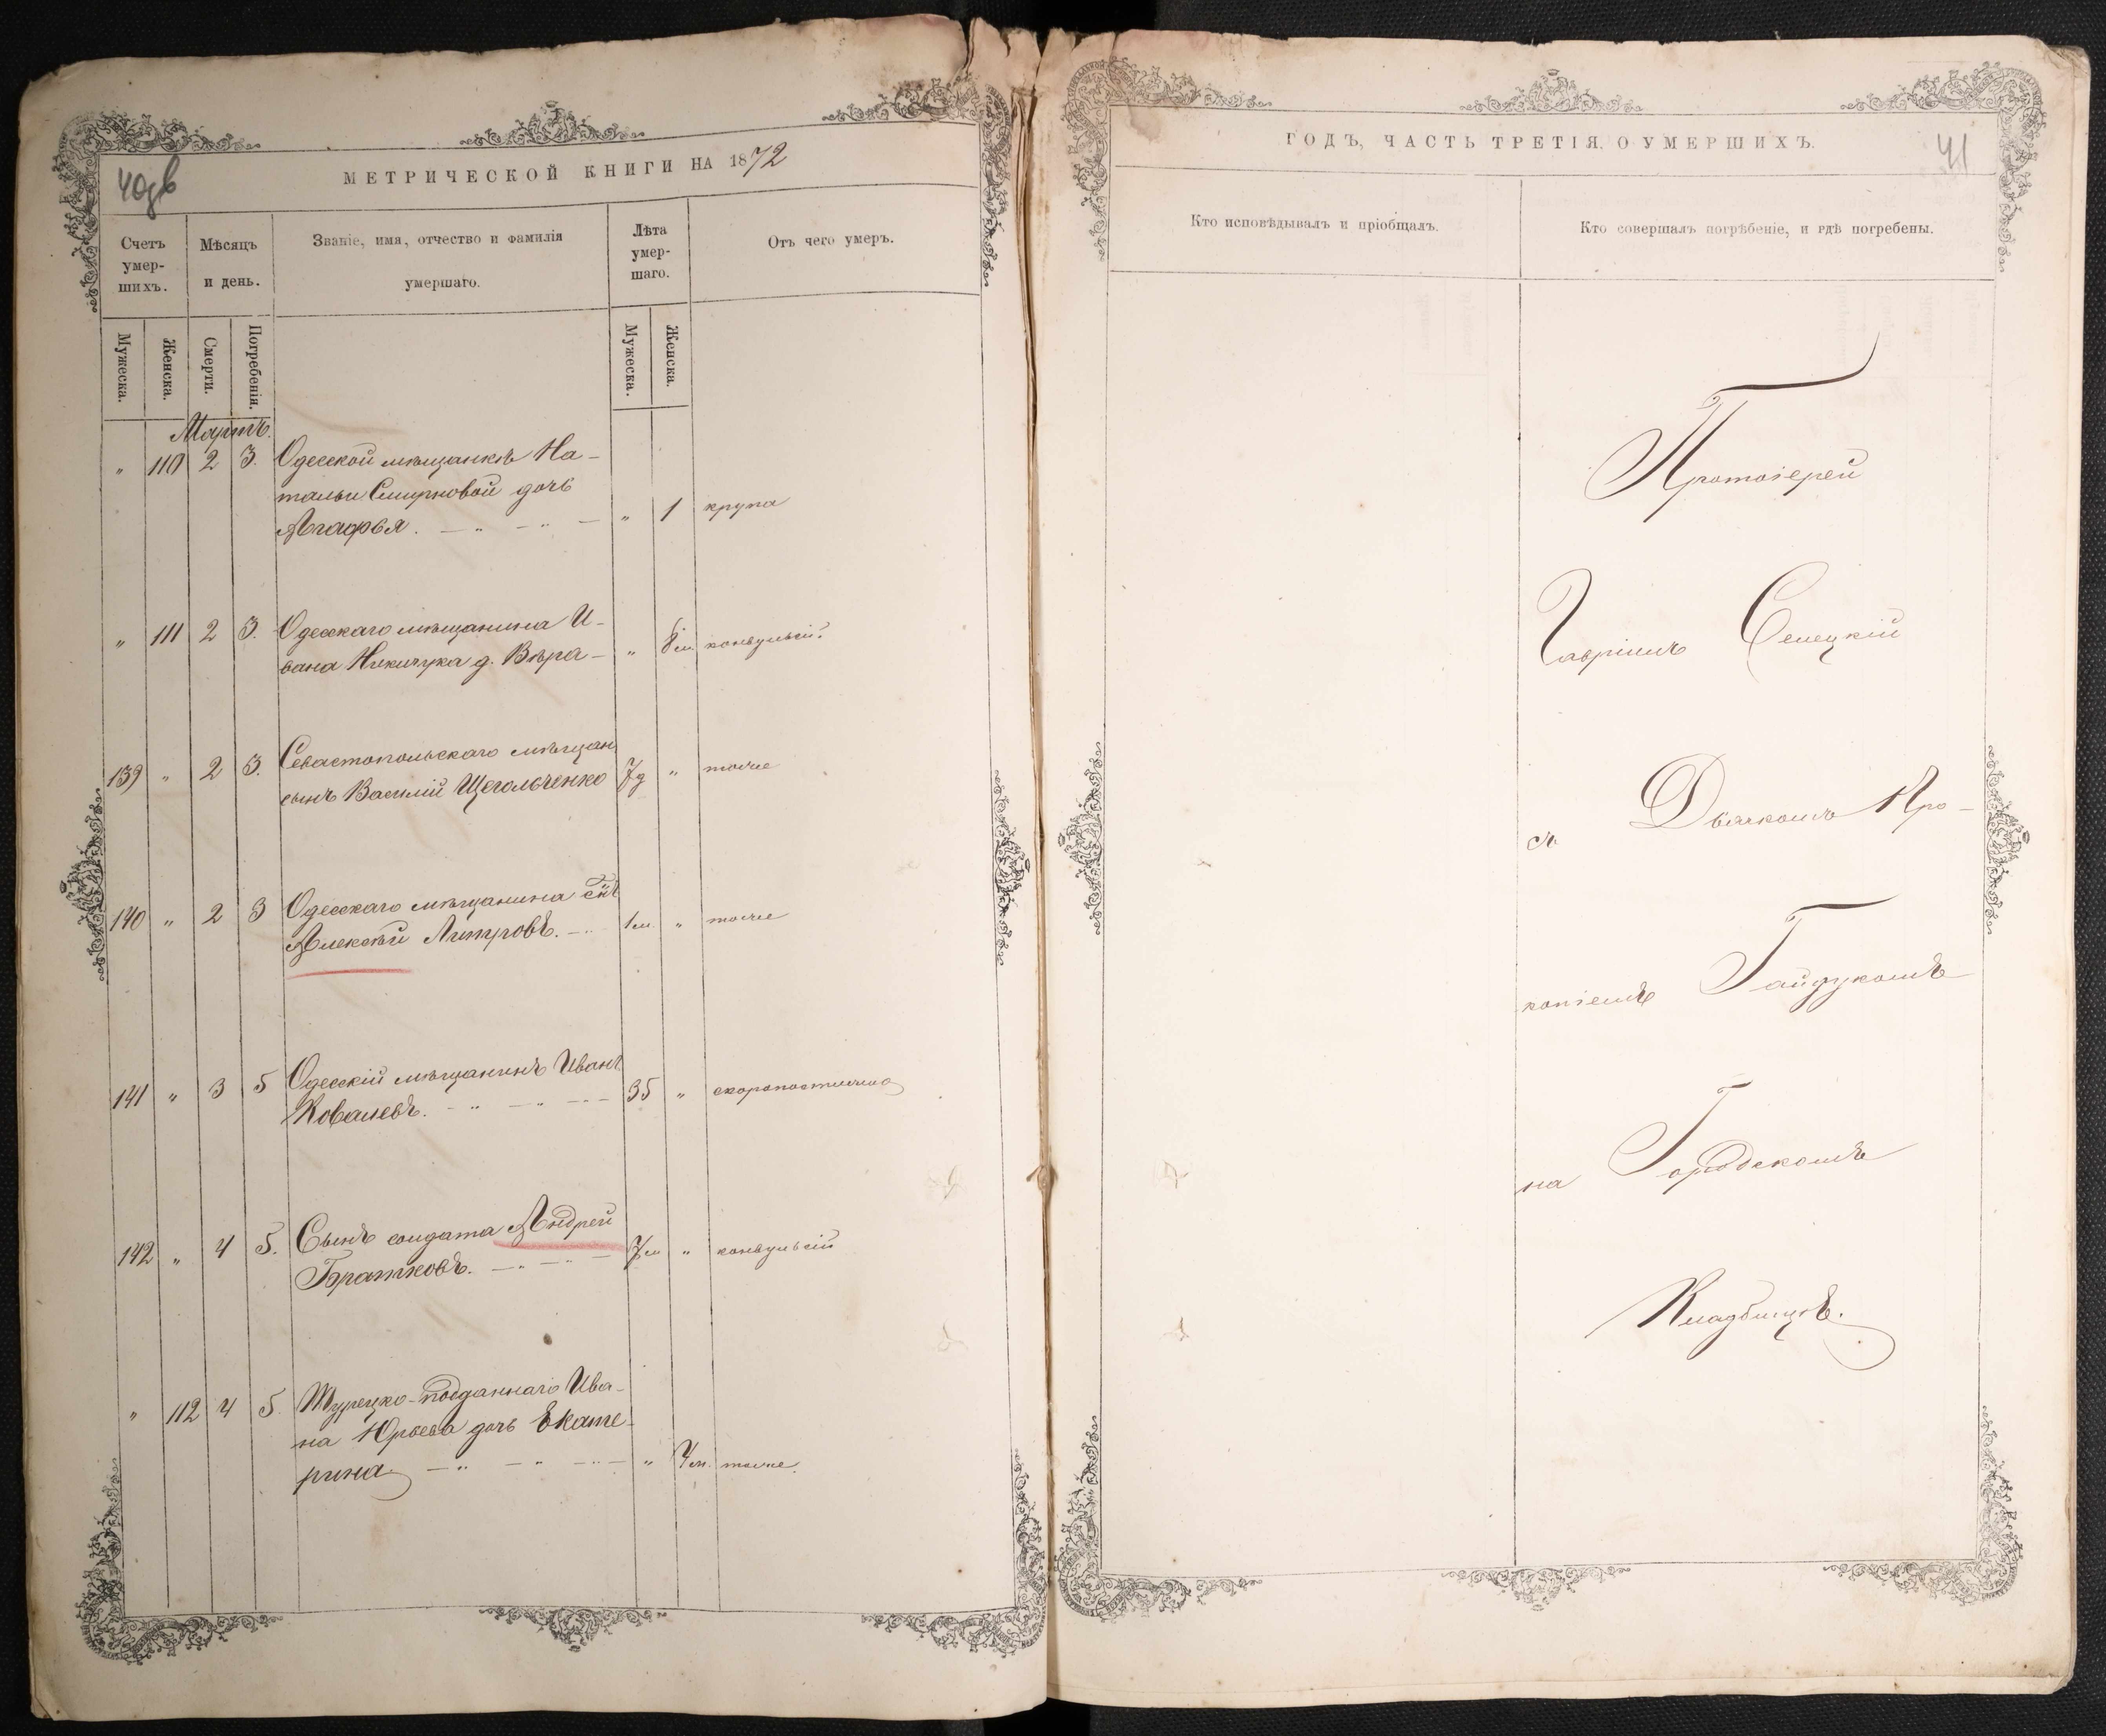 40зв
МЕТРИЧЕСКОЙ КНИГИ НА 1872
Счетъ умер-шихъ.
Мѣсяцъ и день.
Званіе, имя, отчество и фамилія умершаго.
Лѣта умер-шаго.
Отъ чего умеръ.
Мужеска.
Женска.
Смерти.
Погребенія.
Мужеска.
Женска.
Мартъ.
" 110 2 3. Одесской мѣщанкѣ На-
тальи Смирновой дочь
Агафья. — " — " — " 1 крупа
" 111 2 3. Одесскаго мѣщанина И-
вана Никичука д. Вѣра — " 8м. конвульсій.
139 " 2 3. Севастопольскаго мѣщан.
сынъ Василій Щегольченко 7д " тоже
140 " 2 3 Одесскаго мѣщанина с̃нъ
Алексѣй Литровъ. — " 1м. " тоже
141 " 3 5 Одесскій мѣщанинъ Иванъ
Ковалевъ. — " — " — " — 35 " скоропостижно
142 " 4 5. Сынъ солдата Андрей
Братковъ. — " — " — 7м " конвульсій
" 112 4 5 Турецко-подданнаго Ива-
на Юрьева дочь Екате-
рина — " — " — " — " 4м. тоже.
ГОДЪ, ЧАСТЬ ТРЕТІЯ, О УМЕРШИХЪ.
41
Кто исповѣдывалъ и пріобщалъ.
Кто совершалъ погрѣбеніе, и гдѣ погребены.
Протоіерей
Гавріилъ Селецкій
съ Дьячкомъ Про-
копіемъ Гайдукомъ
на Городскомъ
Кладбищѣ.